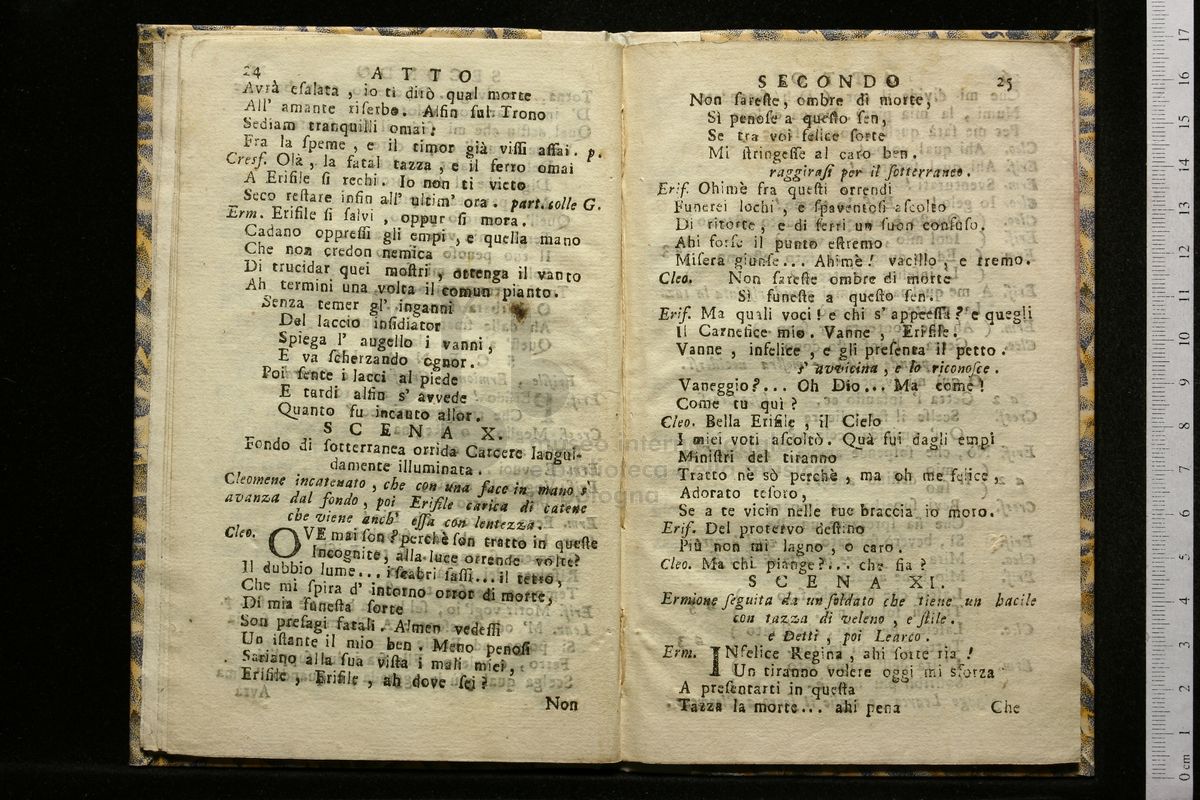 24 ATTO
Avrà esalata, io ti dirò qual morte
All' amante riserbo. Alfin sul Trono
Sediam tranquilli omai:
Fra la speme, e il timor già vissi assai. p.
Cresf. Olà, la fatal tazza, e il ferro omai
A Erifile si rechi. Io non ti vieto
Seco restare infin all' ultim' ora. part. colle G.
Erm. Erifile si salvi, oppur si mora.
Cadano oppressi gli empi, e quella mano
Che non credon nemica
Di trucidar quei mostri, ottenga il vanto
Ah termini una volta il comun pianto.
Senza temer gl' inganni
Del laccio insidiator
Spiega l' augello i vanni,
E va scherzando ognor.
Poi sente i lacci al piede
E tardi alfin s' avvede
Quanto fu incauto allor.
SCENA X.
Fondo di sotterranea orrida Carcere langui-
damente illuminata.
Cleomene incatenato, che con una face in mano s'
avanza dal fondo, poi Erifile carica di catene
che viene anch' essa con lentezza.
Cleo. OVE mai son? perchè son tratto in queste
Incognite, alla luce orrende volte?
Il dubbio lume... i scabri sassi... il tetto,
Che mi spira d' intorno orror di morte,
Di mia funesta sorte
Son presagi fatali. Almen vedessi
Un istante il mio ben. Meno penosi
Sariano alla sua vista i mali miei,
Erifile, Erifile, ah dove sei?
Non
SECONDO 25
Non sareste, ombre di morte,
Sì penose a questo sen,
Se tra voi felice sorte
Mi stringesse al caro ben.
raggirasi per il sotterraneo.
Erif. Ohimè fra questi orrendi
Funerei lochi, e spaventosi ascolto
Di ritorte, e di ferri un suon confuso.
Ahi forse il punto estremo
Misera giunse... Ahimè! vacillo, e tremo.
Cleo. Non sareste ombre di morte
Sì funeste a questo sen.
Erif. Ma quali voci! e chi s' appressa? e quegli
Il Carnefice mio. Vanne, Erifile.
Vanne, infelice, e gli presenta il petto.
s' avvicina, e lo riconosce.
Vaneggio?... Oh Dio... Ma come!
Come tu quì?
Cleo. Bella Erifile, il Cielo
I miei voti ascoltò. Quà fui dagli empi
Ministri del tiranno
Tratto nè sò perchè, ma oh me felice,
Adorato tesoro,
Se a te vicin nelle tue braccia io moro.
Erif. Del protervo destino
Più non mi lagno, o caro.
Cleo. Ma chi piange?... che fia?
SCENA XI.
Ermione seguita da un soldato che tiene un bacile
con tazza di veleno, e stile.
e Detti, poi Learco.
Erm. INfelice Regina, ahi sorte ria!
Un tiranno volere oggi mi sforza
A presentarti in questa
Tazza la morte... ahi pena
Che